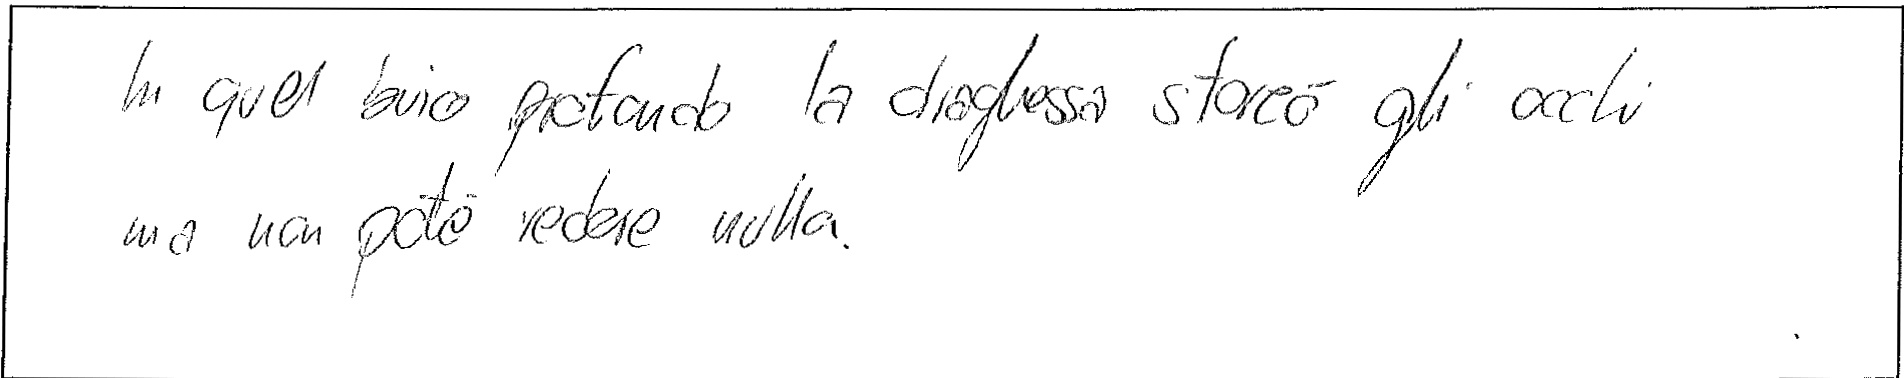 In quel buio profondo la draghessa storcò gli occhi
ma non potè vedere nulla.